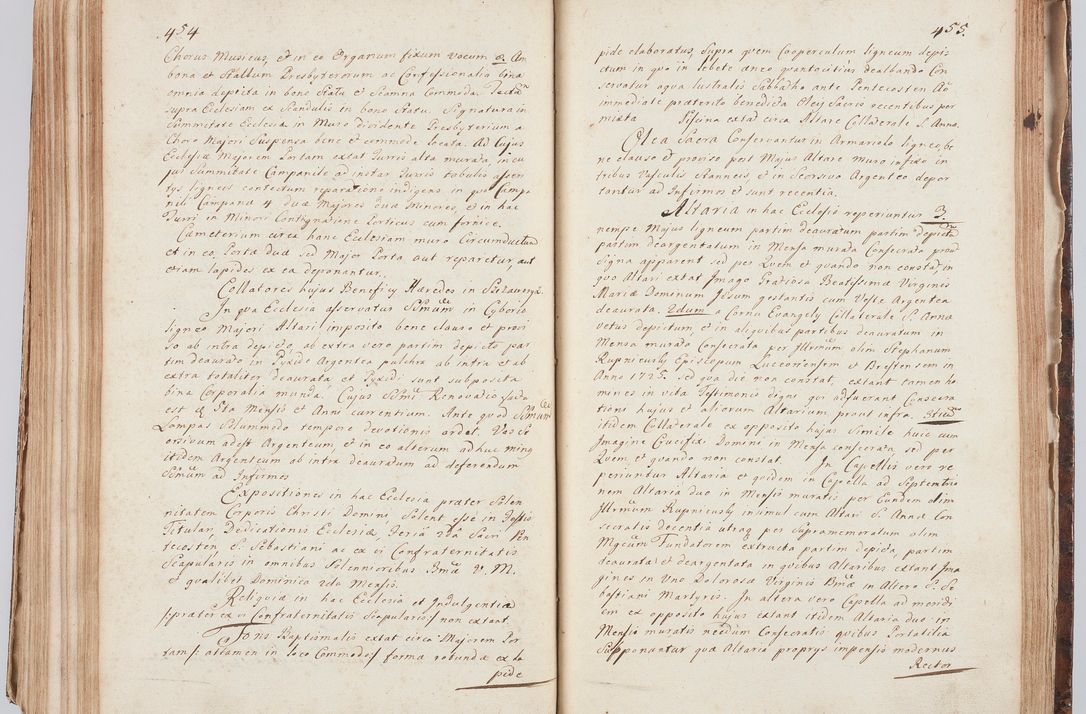 454
Chorus Musicus, et in eo Organum fixum vocum 8. Am
bona et Stallum Presbyterorum ac Confessionalia bina
omnia depicta in bono Statu et Scamna Commoda. Tectum
supra Ecclesiam ex Scandulis in bono Statu. Signatura in
Summitate Ecclesiæ in Muro dividente Presbyterium a
Choro Majori Suspensa bene et commode locata. Ad Cujus
Ecclesiæ Majorem Portam extat Turris alta murata, in cu
jus Summitate Campanile ad instar Turris tabulis asser
tys ligneis contectum reparatione indigens in quo Campa
nili Campanæ 4 duæ Majores duæ Minores, et in hac
Turri in Minori Contignatione Porticus cum fornice.
Cæmeterium circa hanc Ecclesiam muro Circumductum
et in eo Porta duæ sed Major Porta aut reparetur, aut
etiam lapides ex ea deponantur.
Collatores hujus Beneficy Hæredes in
In qua Ecclesia asservatur SSmum in Cyborio
ligneo Majori Altari imposito bene clauso et provi
so ab intra depicto, ab extra vero partim depicto par
tim deaurato in Pyxide Argentea pulchra ab intra et ab
extra totaliter deaurata, et Pyxidi sunt supposita
bina Corporalia munda. Cujus SSmi Renovatio facta
est 9 Ita Mensis et Anni currentium. Ante quod SSmum
Lampas Solummodo tempore devotionis ardet. Vas Se
orsivum adest Argenteum, et in eo alterum adhuc
itidem Argenteum ab intra deauratum ad deferendum
SSmum ad Infirmos
Expositiones in hac Ecclesia præter Solen
nitatem Corporis Christi Domini, Solent esse in Festis
Titulari, Dedicationis Ecclesiæ, Feria 2da Sacri Pen
tecosten, S. Sebastiani ac ex vi Confraternitatis
Scapularis in omnibus Solennioribus Bmæ V. M.
et qualibet Dominica 2da Mensis.
Reliquiæ in hac Ecclesia et Indulgentiæ
præter ex vi Confraternitatis Scapularis non extant.
Fons Baptismalis extat circa Majorem Por
tam attamen in loco Commodo forma rotunda ex la
pide
455.
pide elaboratus, Supra quem Cooperculum ligneum depic
tum in quo in lebete æneo quantocitius dealbando Con
servatur aqua lustralis Sabbatho ante Pentecosten
immediate præterito benedicta Oleis Sacris recentibus per
mixta Piscina extat circa Altare Collaterale S. Annæ
Olea Sacra Conservantur in Armariolo ligneo, be
ne clauso et proviso post Majus Altare muro infixo in
tribus Vasculis Stanneis, et in Seorsivo Argenteo depor
tantur ad Infirmos et sunt recentia.
Altaria in hac Ecclesia reperiuntur 3.
nempe Majus ligneum partim deauratum partim depictum
partim deargentatum in Mensa murata Consecrata prout
Signa apparent sed per Quem et quando non constat, in
quo Altari extat Imago Gratiosa Beatissimæ Virginis
Mariæ Dominum Jesum gestantis cum Veste Argentea
deaurata. 2dum a Cornu Evangely Collaterale S. Annæ
vetus depictum et in aliquibus partibus deauratum in
Mensa murata Consecrata per Illrmum olim Stephanum
Rupniewsky Episcopum Luceoriensem et Brestensem in
Anno 1725. sed qua die non constat, extant tamen ho
mines in vita Testimonio digni qui adfuerant Consecra
tioni hujus et aliorum Altarium prout infra. 3tium
itidem Collaterale ex opposito hujus Simile huic cum
Imagine Crucifixi Domini in Mensa consecrata, sed per
Quem et quando non constat. In Capellis vero re
periuntur Altaria et quidem in Capella ad Septentrio
nem Altaria duo in Mensis muratis per Eundem olim
Illrmum Rupniewsky insimul cum Altari S. Annæ Con
secratis decentia utraq per Supramemoratum olim
Mgcum Fundatorem extructa partim depicta, partim
deaurata et deargentata in quibus Altaribus extant Ima
gines in Uno Dolorosæ Virginis Bmæ in Altero S. Se
bastiani Martyris. In altera vero Capella ad meridi
em ex opposito hujus extant itidem Altaria duo in
Mensis muratis necdum Consecratis quibus Portatilia
Supponuntur quæ Altaria proprys impensis modernus
Rector